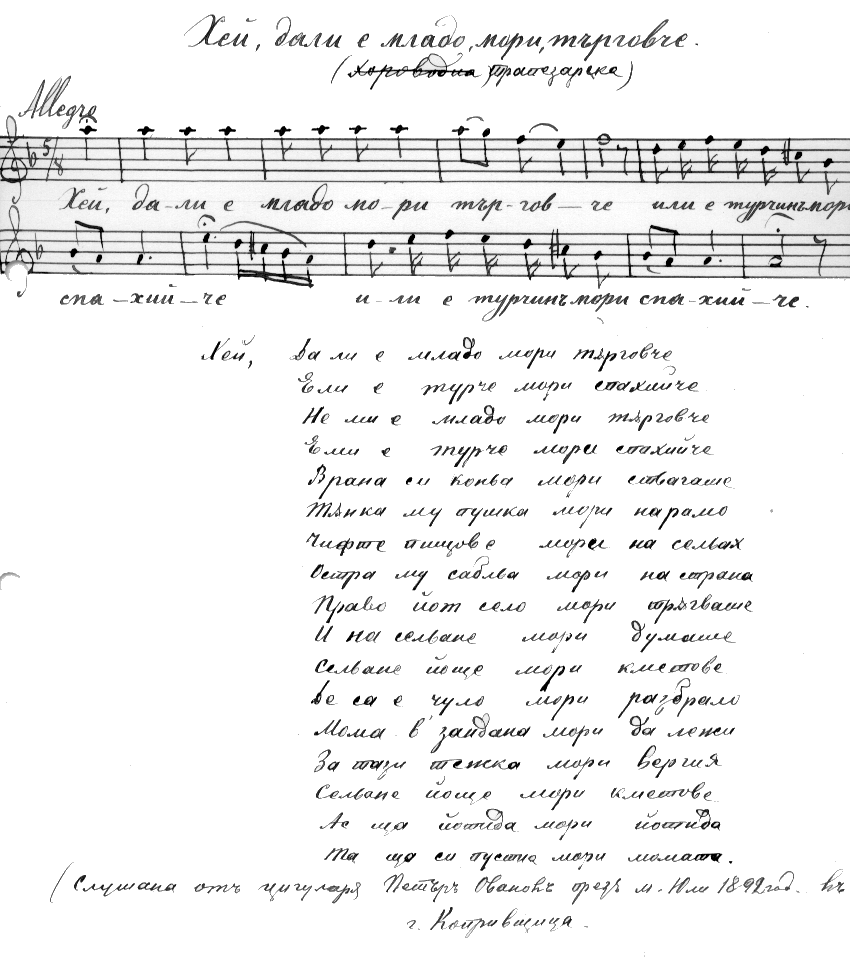 Хей, дали е младо, мори, търговче.
(хороводна трапезарска)
Allegro
5/8
Хей, да-ли е младо мо-ри тър-гов-че или е турчинъ мори
спа-хий-че и-ли е турчинъ мори спа-хий-че.
Хей, Да ли е младо мори търговче
Ели е турче мори спахийче
Не ми е младо мори търговче
Еми е турче мори спахийче
Врана си коньа мори стягаше
Тънка му пушка мори на рамо
Чифте пищове мори на сельах
Остра му сабльа мори на страна
Право йот село мори тръгваше
И на сельане мори думаше
Сельане йоще мори кметове
Де са е чуло мори разбрало
Мома в зандана мори да лежи
За тази тежка мори вергия
Сельане йоще мори кметове
Ас ща йотида мори йотида
Та ща си пустна мори момата.
(Слушана отъ цигуларя Петъръ Овановъ презъ м. Юли 1892 год. въ
г. Копривщица.